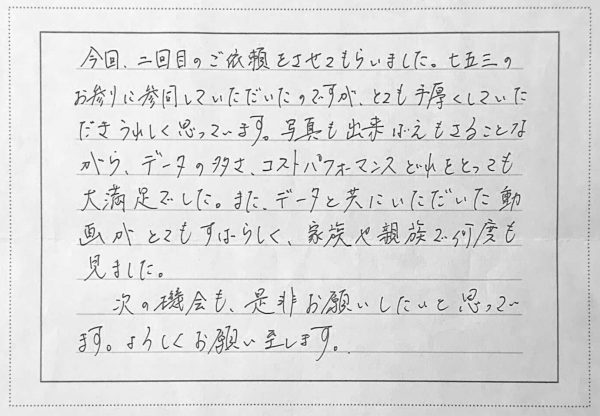 今回、二回目のご依頼をさせてもらいました。七五三の
お参りに参同していただいたのですが、とても手厚くしていた
だきうれしく思っています。写真も出来ばえもさることな
がら、データの多さ、コストパフォーマンスどれをとっても
大満足でした。また、データと共にいただいた動
画がとてもすばらしく、家族や親族で何度も
見ました。
次の機会も、是非お願いしたいと思ってい
ます。よろしくお願い至します。